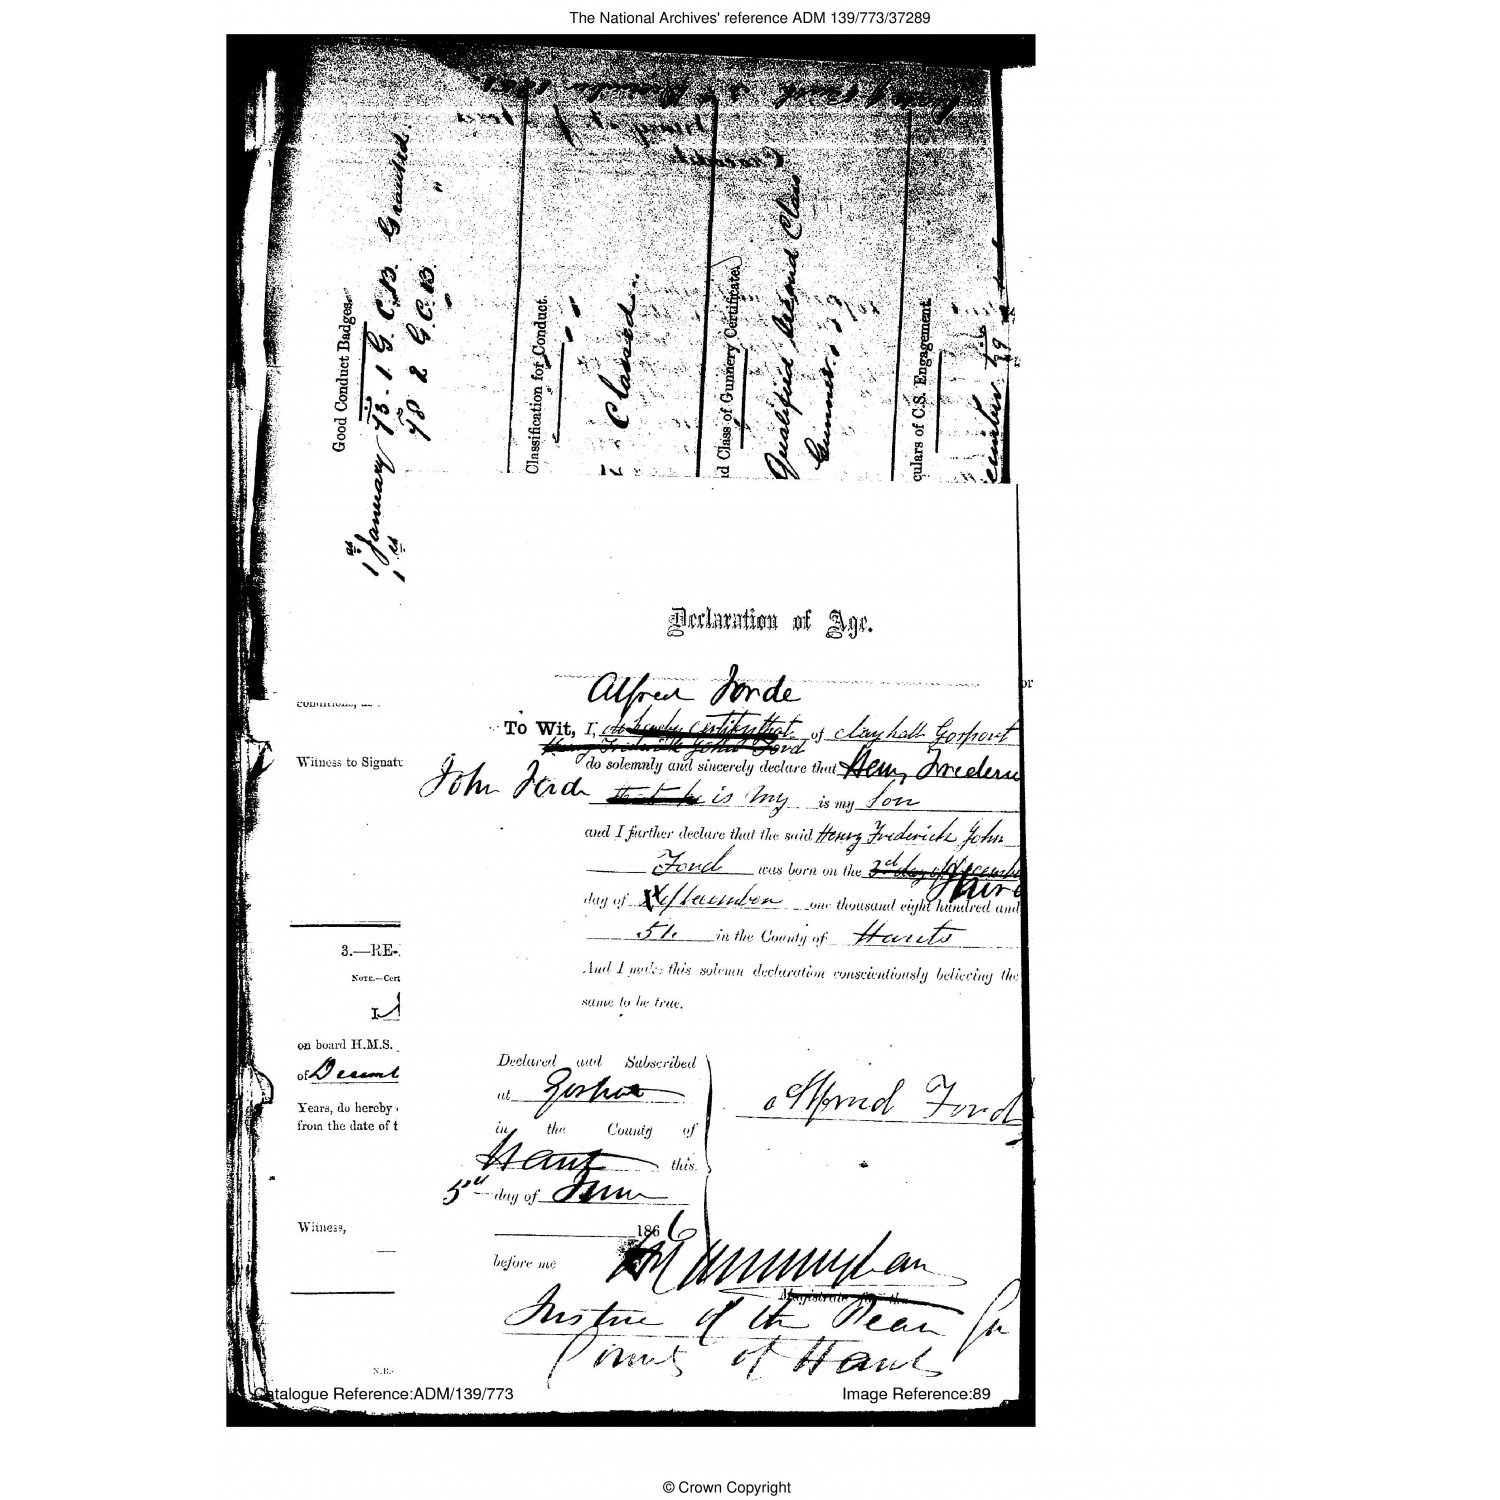 The National Archives' reference ADM 139/773/37289
Good Conduct Badges.
1st January 73. 1 G.C.B. Granted.
1st 78 2 G.C.B. "
Classification for Conduct.
Classed
d Class of Gunnery Certificate.
Qualified Second Class
Gunner.
culars of C.S. Engagement.
Declaration of Age.
or
Alfred Forde
To Wit, I, do hereby certify that of Clayhall Gosport
Henry Frederick John Ford
do solemnly and sincerely declare that Henry Frederic
John Forde that he is my is my Son
and I further declare that the said Henry Frederick John
Ford was born on the 3rd day of Decembe
third
day of one thousand eight hundred and
51. in the County of Hants
And I make this solemn declaration conscientiously believing the
same to be true.
Witness to Signatu
3.—RE-
NOTE.—Cert
I
on board H.M.S.
of Decemb
Years, do hereby
from the date of t
Witness,
N.B.-
Declared and Subscribed
at Gosport
in the County of
Hants this
5th day of June
1866
before me
Alfred Ford
Magistrate for the
Justice of the Peace for
County of Hants
Catalogue Reference:ADM/139/773
Image Reference:89
© Crown Copyright